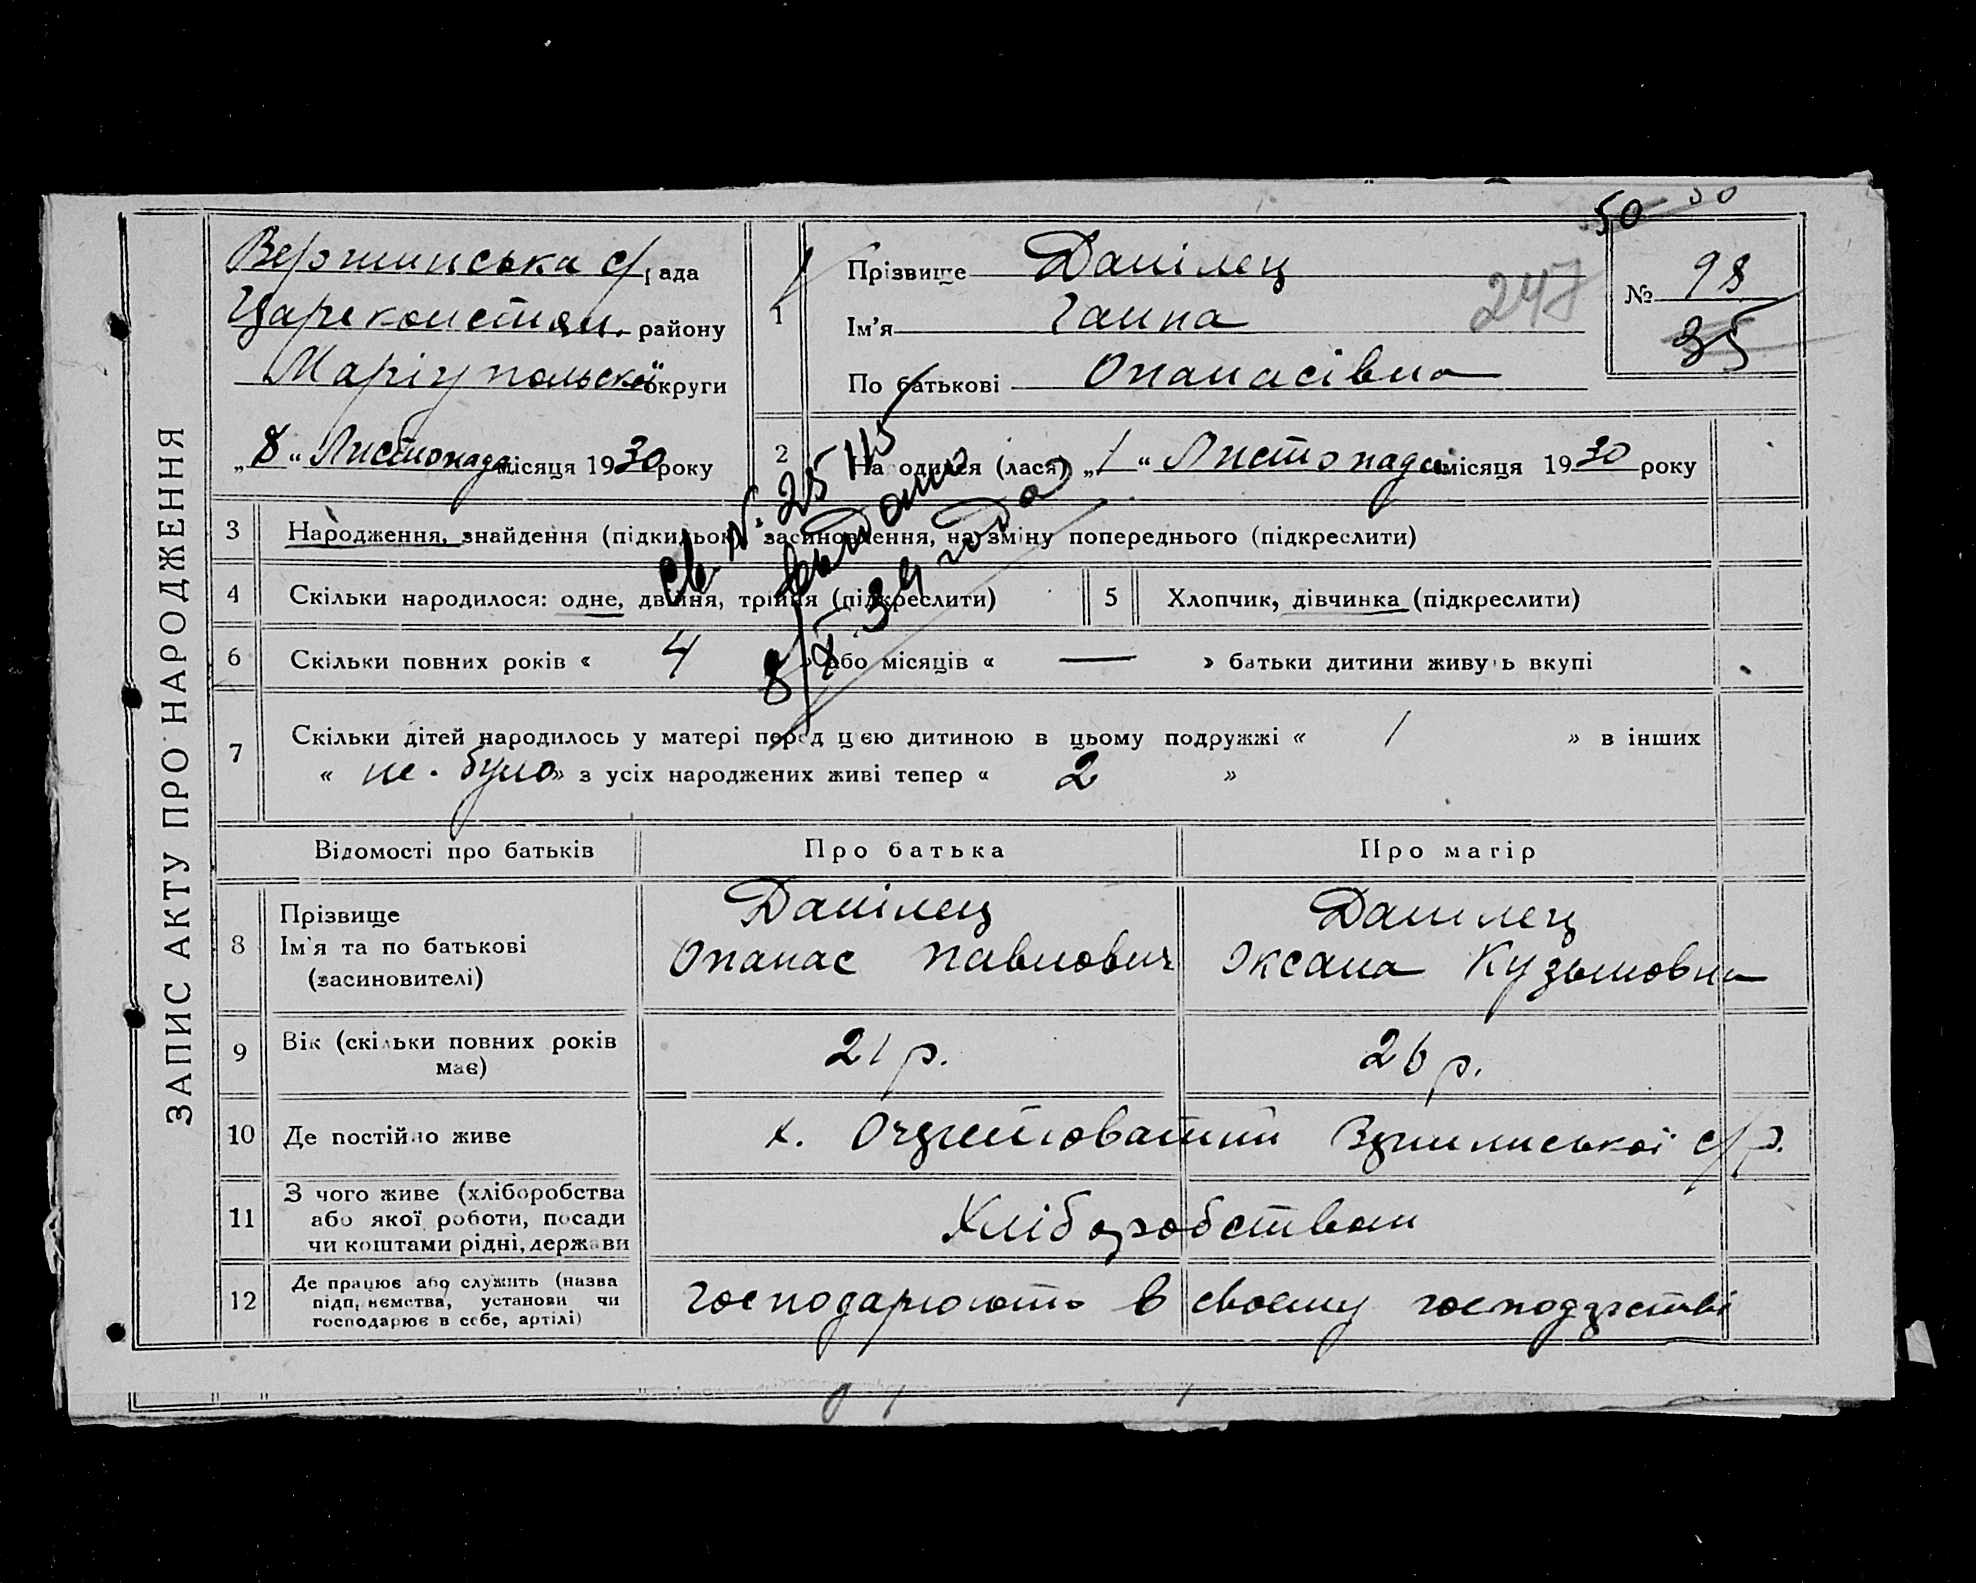 ЗАПИС АКТУ ПРО НАРОДЖЕННЯ
50
Вершинська с/рада
Царекостян. району
Маріупольської округи
„8“ Листопада місяця 1930 року
1
Прізвище Данілец
Ім'я Ганна
По батькові Опанасівна
247
№ 98
35
2 Народився (лася) „1“ Листопада місяця 1930 року
св. № 25445
выдано
8/X 34 года
3 Народження, знайдення (підкидьок) засиновлення, на зміну попереднього (підкреслити)
4 Скільки народилося: одне, двійня, трійня (підкреслити)
5 Хлопчик, дівчинка (підкреслити)
6 Скільки повних років « 4 » або місяців « — » батьки дитини живуть вкупі
7 Скільки дітей народилось у матері перед цією дитиною в цьому подружжі « 1 » в інших
« не було » з усіх народжених живі тепер « 2 »
Відомості про батьків Про батька Про матір
8 Прізвище
Ім'я та по батькові
(засиновителі)
Данілец
Опанас Павлович
Данилец
Оксана Кузьмовна
9 Вік (скільки повних років має) 21 р. 26 р.
10 Де постійно живе х. Очеретоватий с/р.
11 З чого живе (хліборобства
або якої роботи, посади
чи коштами рідні, держави
Хліборобством
12 Де працює або служить (назва
підприємства, установи чи
господарює в себе, артілі)
господарюють в своєму господарстві